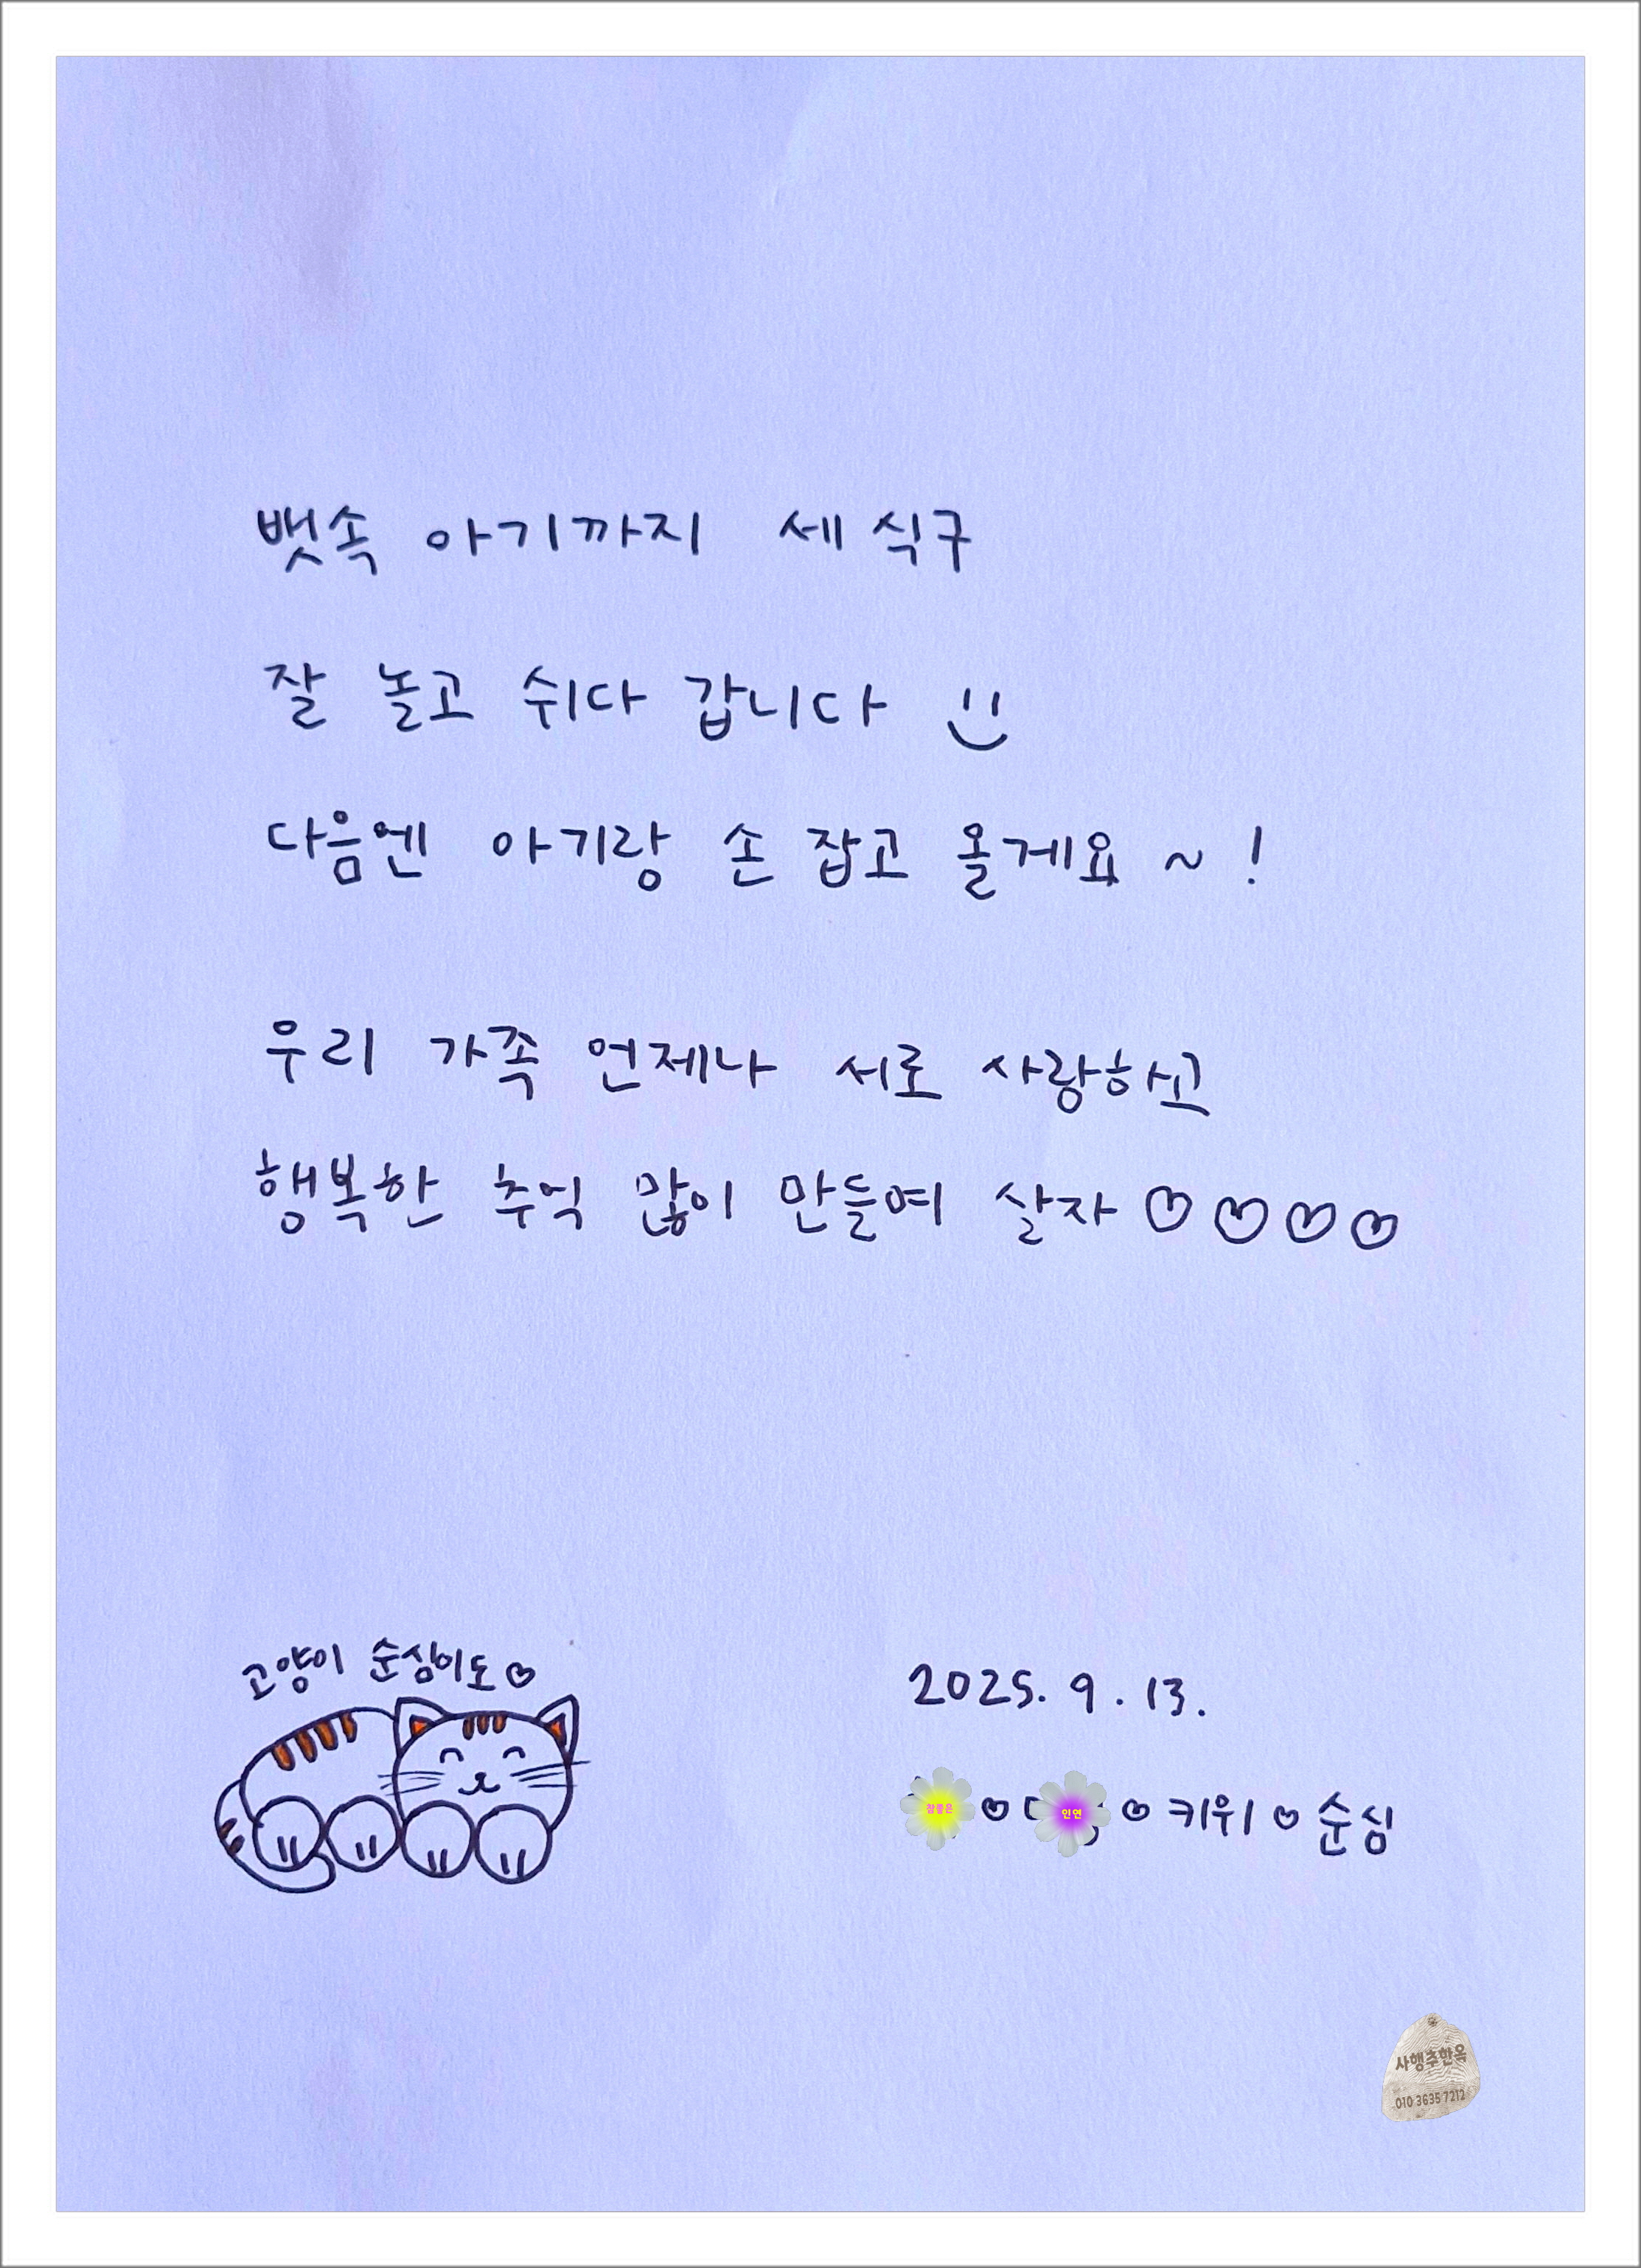 뱃속 아기까지 세 식구
잘 놀고 쉬다 갑니다
다음엔 아기랑 손 잡고 올게요 ~ !
우리 가족 언제나 서로 사랑하고
행복한 추억 많이 만들며 살자 ♡♡♡♡
고양이 순심이도♡
2025. 9. 13.
참좋은 ♡ 인연 ♡ 키위 ♡ 순심
사행추한옥
010 3635 7212